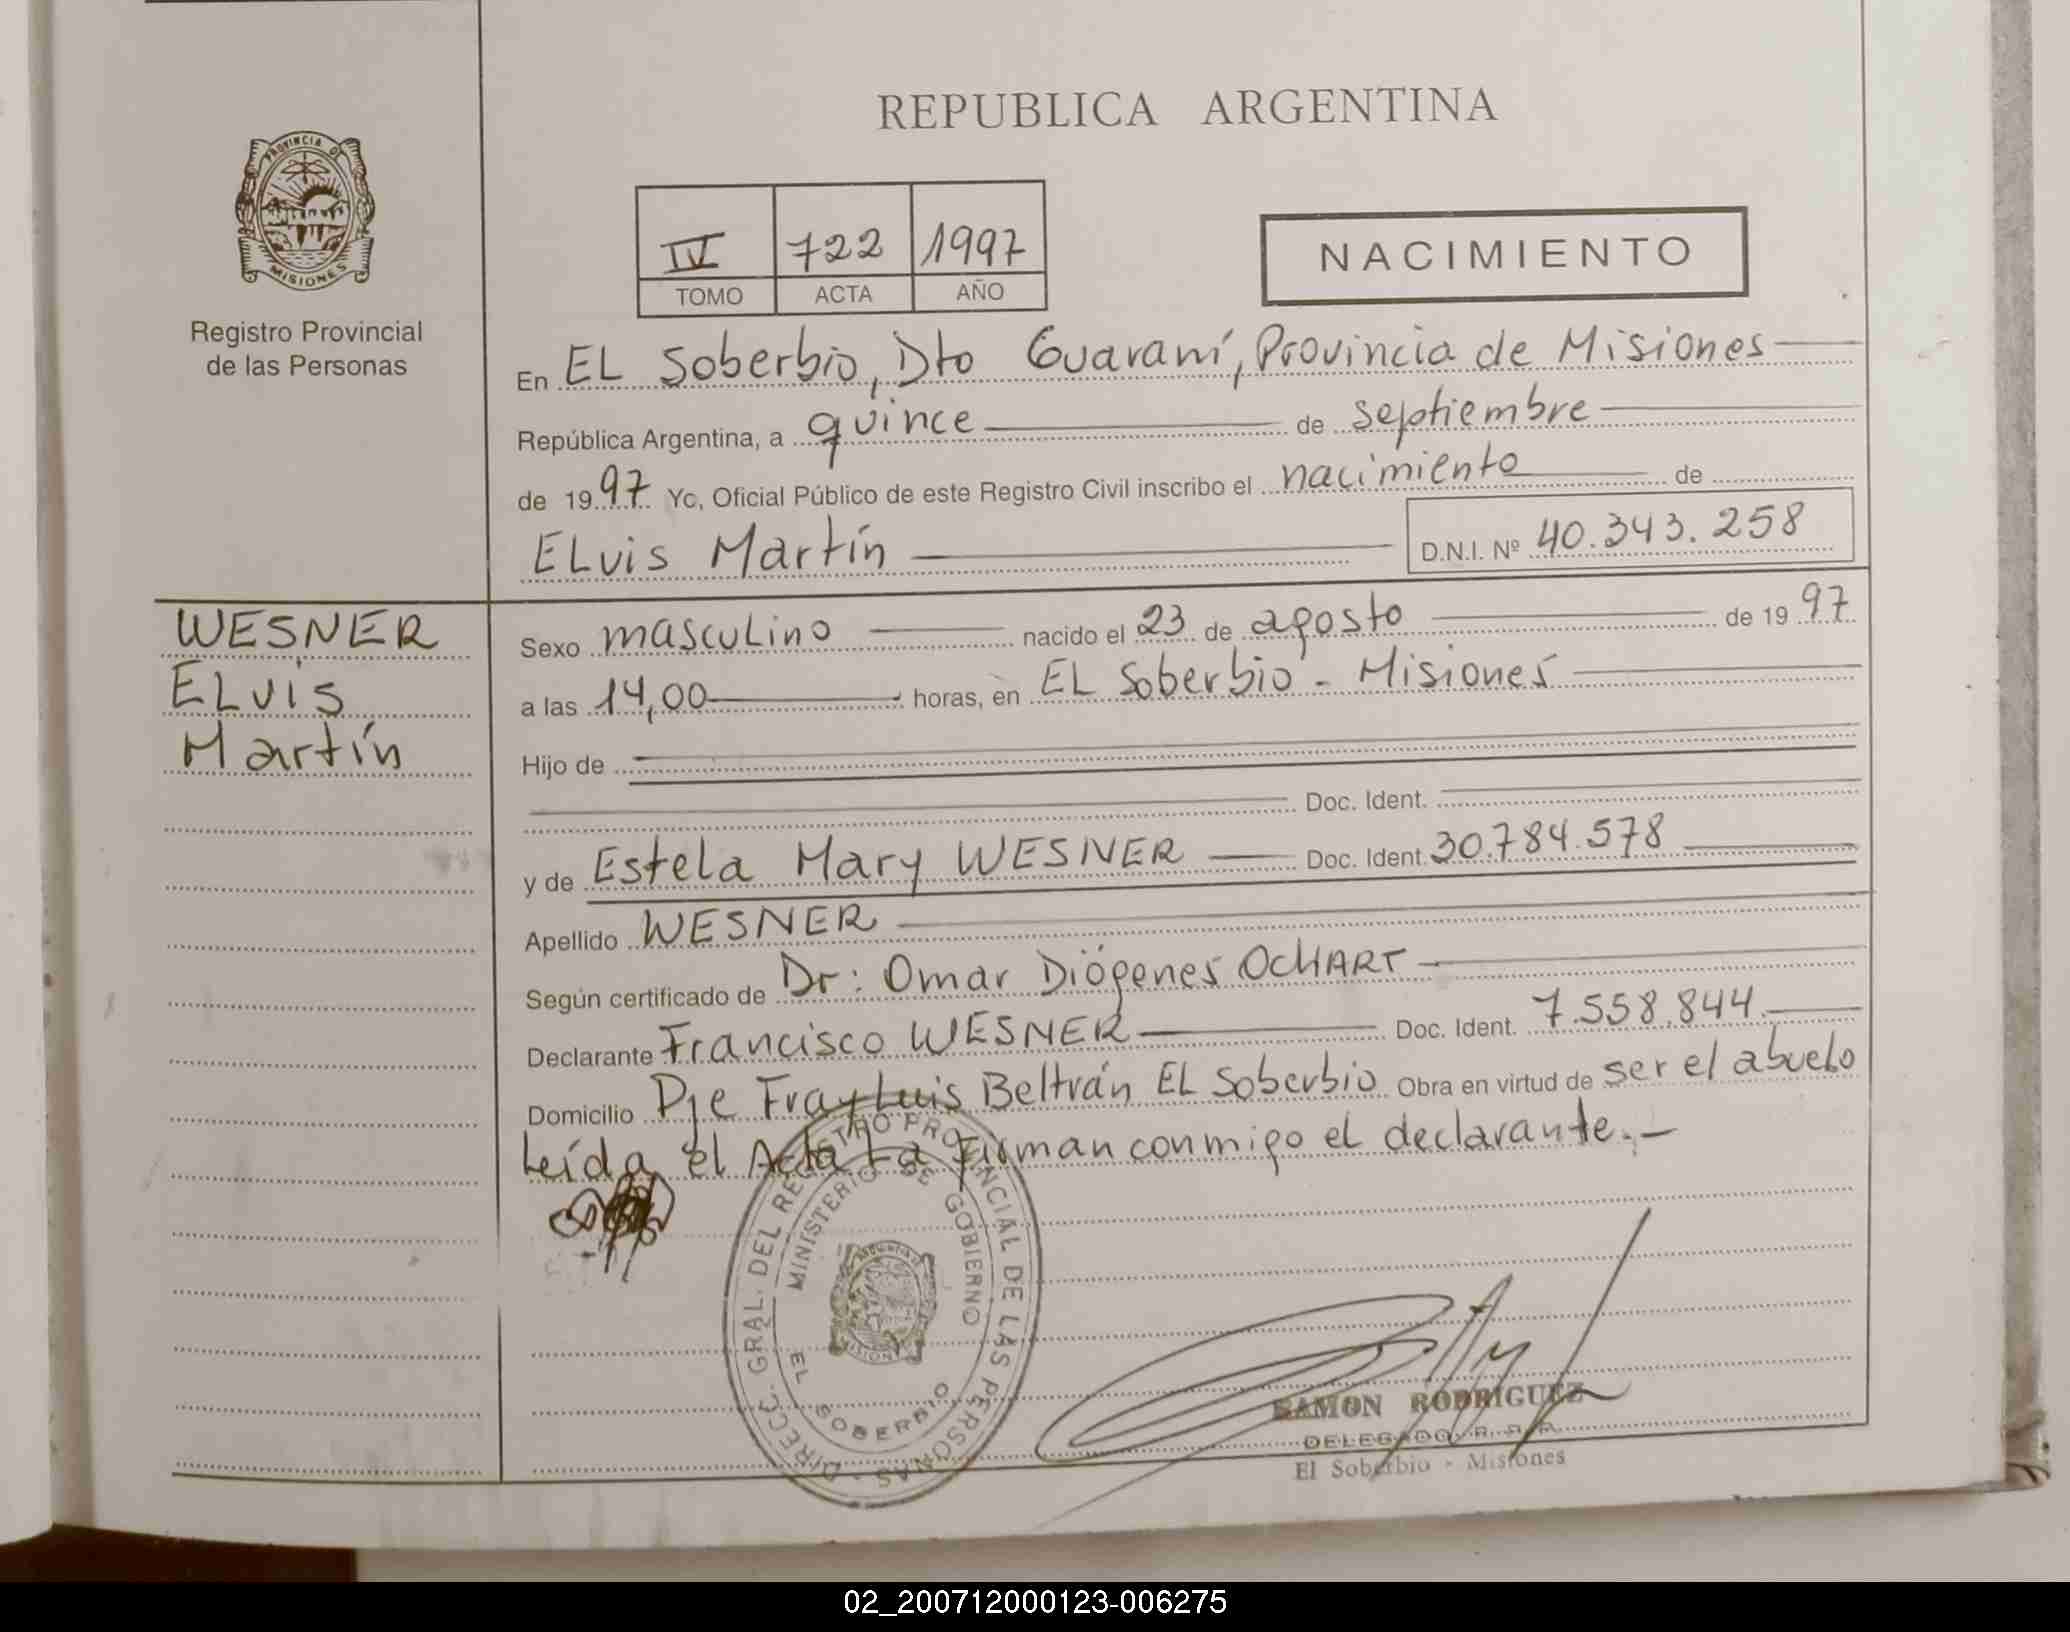 REPUBLICA ARGENTINA
PROVINCIA DE
MISIONES
Registro Provincial
de las Personas
IV 722 1997
TOMO ACTA AÑO
NACIMIENTO
En EL Soberbio, Dto Guaraní, Provincia de Misiones
República Argentina, a quince de septiembre
de 1997 Yo, Oficial Público de este Registro Civil inscribo el nacimiento de
ELvis Martín D.N.I. Nº 40.343.258
WESNER
ELvis
Martín
Sexo masculino nacido el 23 de agosto de 1997
a las 14,00 horas, en EL Soberbio - Misiones
Hijo de
Doc. Ident.
y de Estela Mary WESNER Doc. Ident. 30.784.578
Apellido WESNER
Según certificado de Dr: Omar Diógenes OCHART
Declarante Francisco WESNER Doc. Ident. 7.558.844
Domicilio Pje Fray Luis Beltrán EL Soberbio Obra en virtud de ser el abuelo
Leída el Acta La Firman conmigo el declarante.-
DIRECC. GRAL. DEL REGISTRO PROVINCIAL DE LAS PERSONAS -
MINISTERIO DE GOBIERNO
EL SOBERBIO
RAMON RODRIGUEZ
DELEGADO R. P. P.
El Soberbio - Misiones
02_200712000123-006275